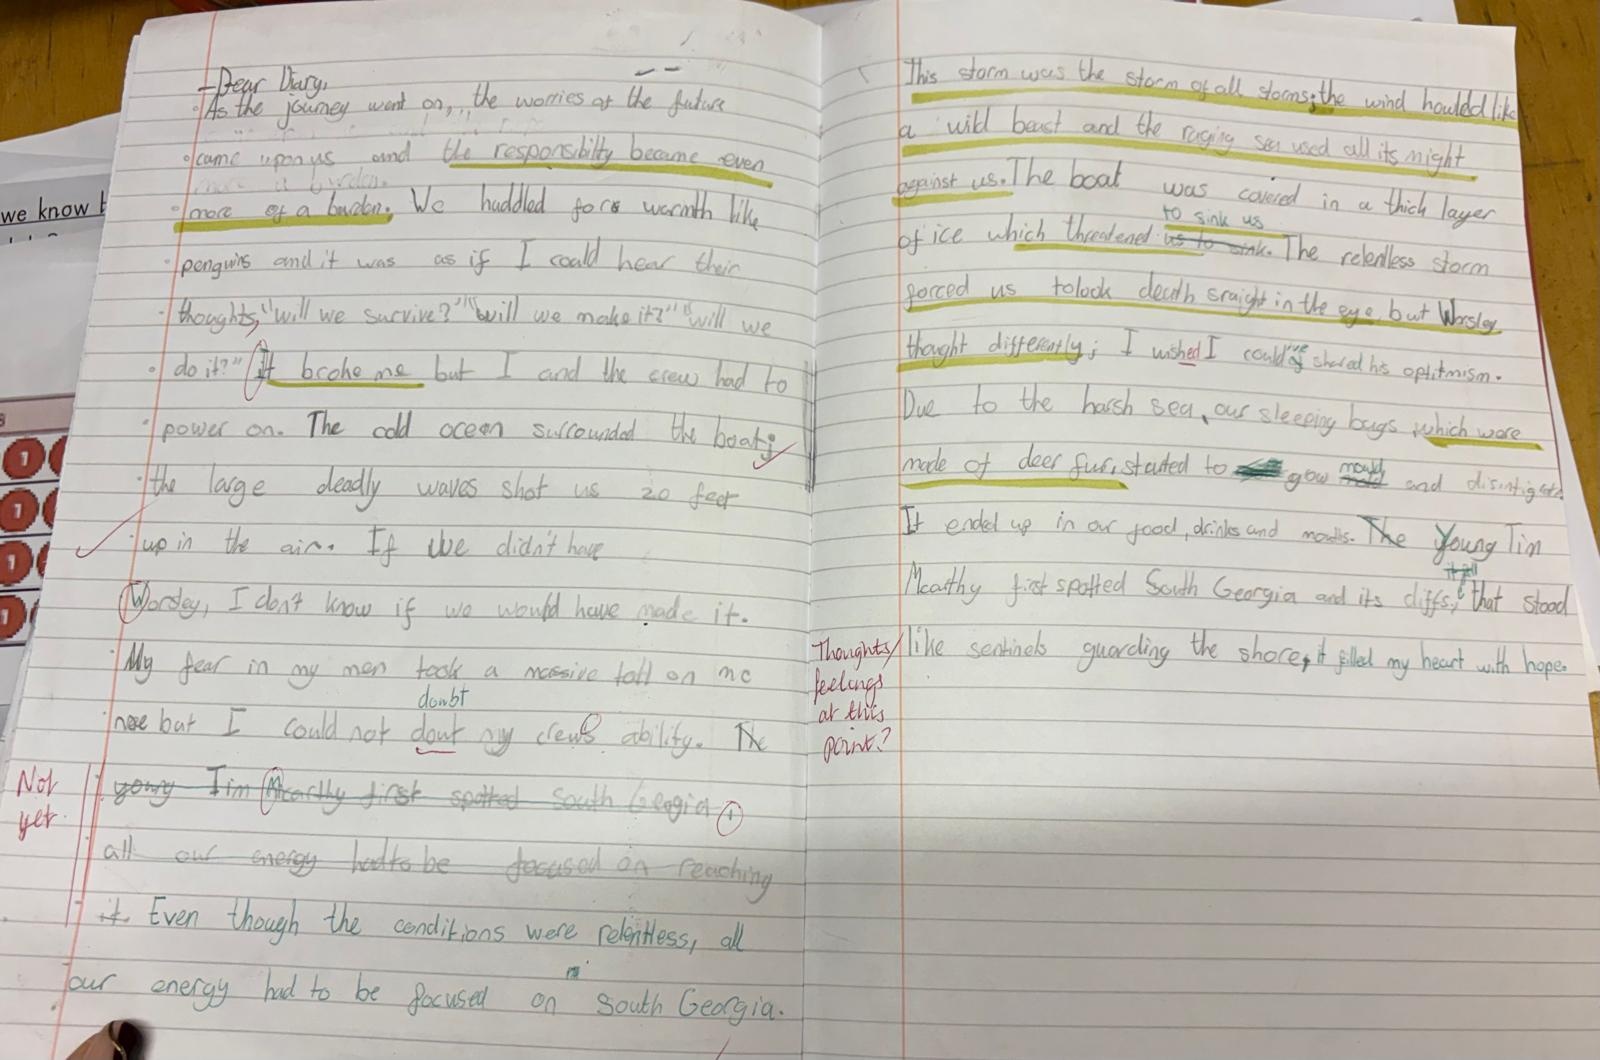 we know
Dear Diary,
As the journey went on, the worries of the future
came upon us and the responsibilty became even
more of a burden. We huddled for warmth like
penguins and it was as if I could hear their
thoughts, "will we survive?" "will we make it?" "will we
do it?" It broke me but I and the crew had to
power on. The cold ocean surrounded the boat;
the large deadly waves shot us 20 feet
up in the air. If we didn't have
Worsley, I don't know if we would have made it.
My fear in my men took a massive toll on me
doubt
but I could not dout my crews ability. The
young Tim Mcarthy first spotted South Georgia
all our energy had to be focused on reaching
it. Even though the conditions were relentless, all
our energy had to be focused on South Georgia.
Not
yet
This storm was the storm of all storms; the wind howled like
a wild beast and the raging sea used all its might
against us. The boat was covered in a thick layer
to sink us
of ice which threatened us to sink. The relentless storm
forced us to look death sraight in the eye, but Worsley
thought differently; I wished I could've shared his optitmism.
Due to the harsh sea, our sleeping bags, which were
made of deer fur, started to gow mould and
It ended up in our food, drinks and mouths. The Young Tim
Mcarthy first spotted South Georgia and its cliffs, that stood
like sentinels guarding the shore, it filled my heart with hope.
Thoughts/
feelings
at this
point?
1
1
1
1